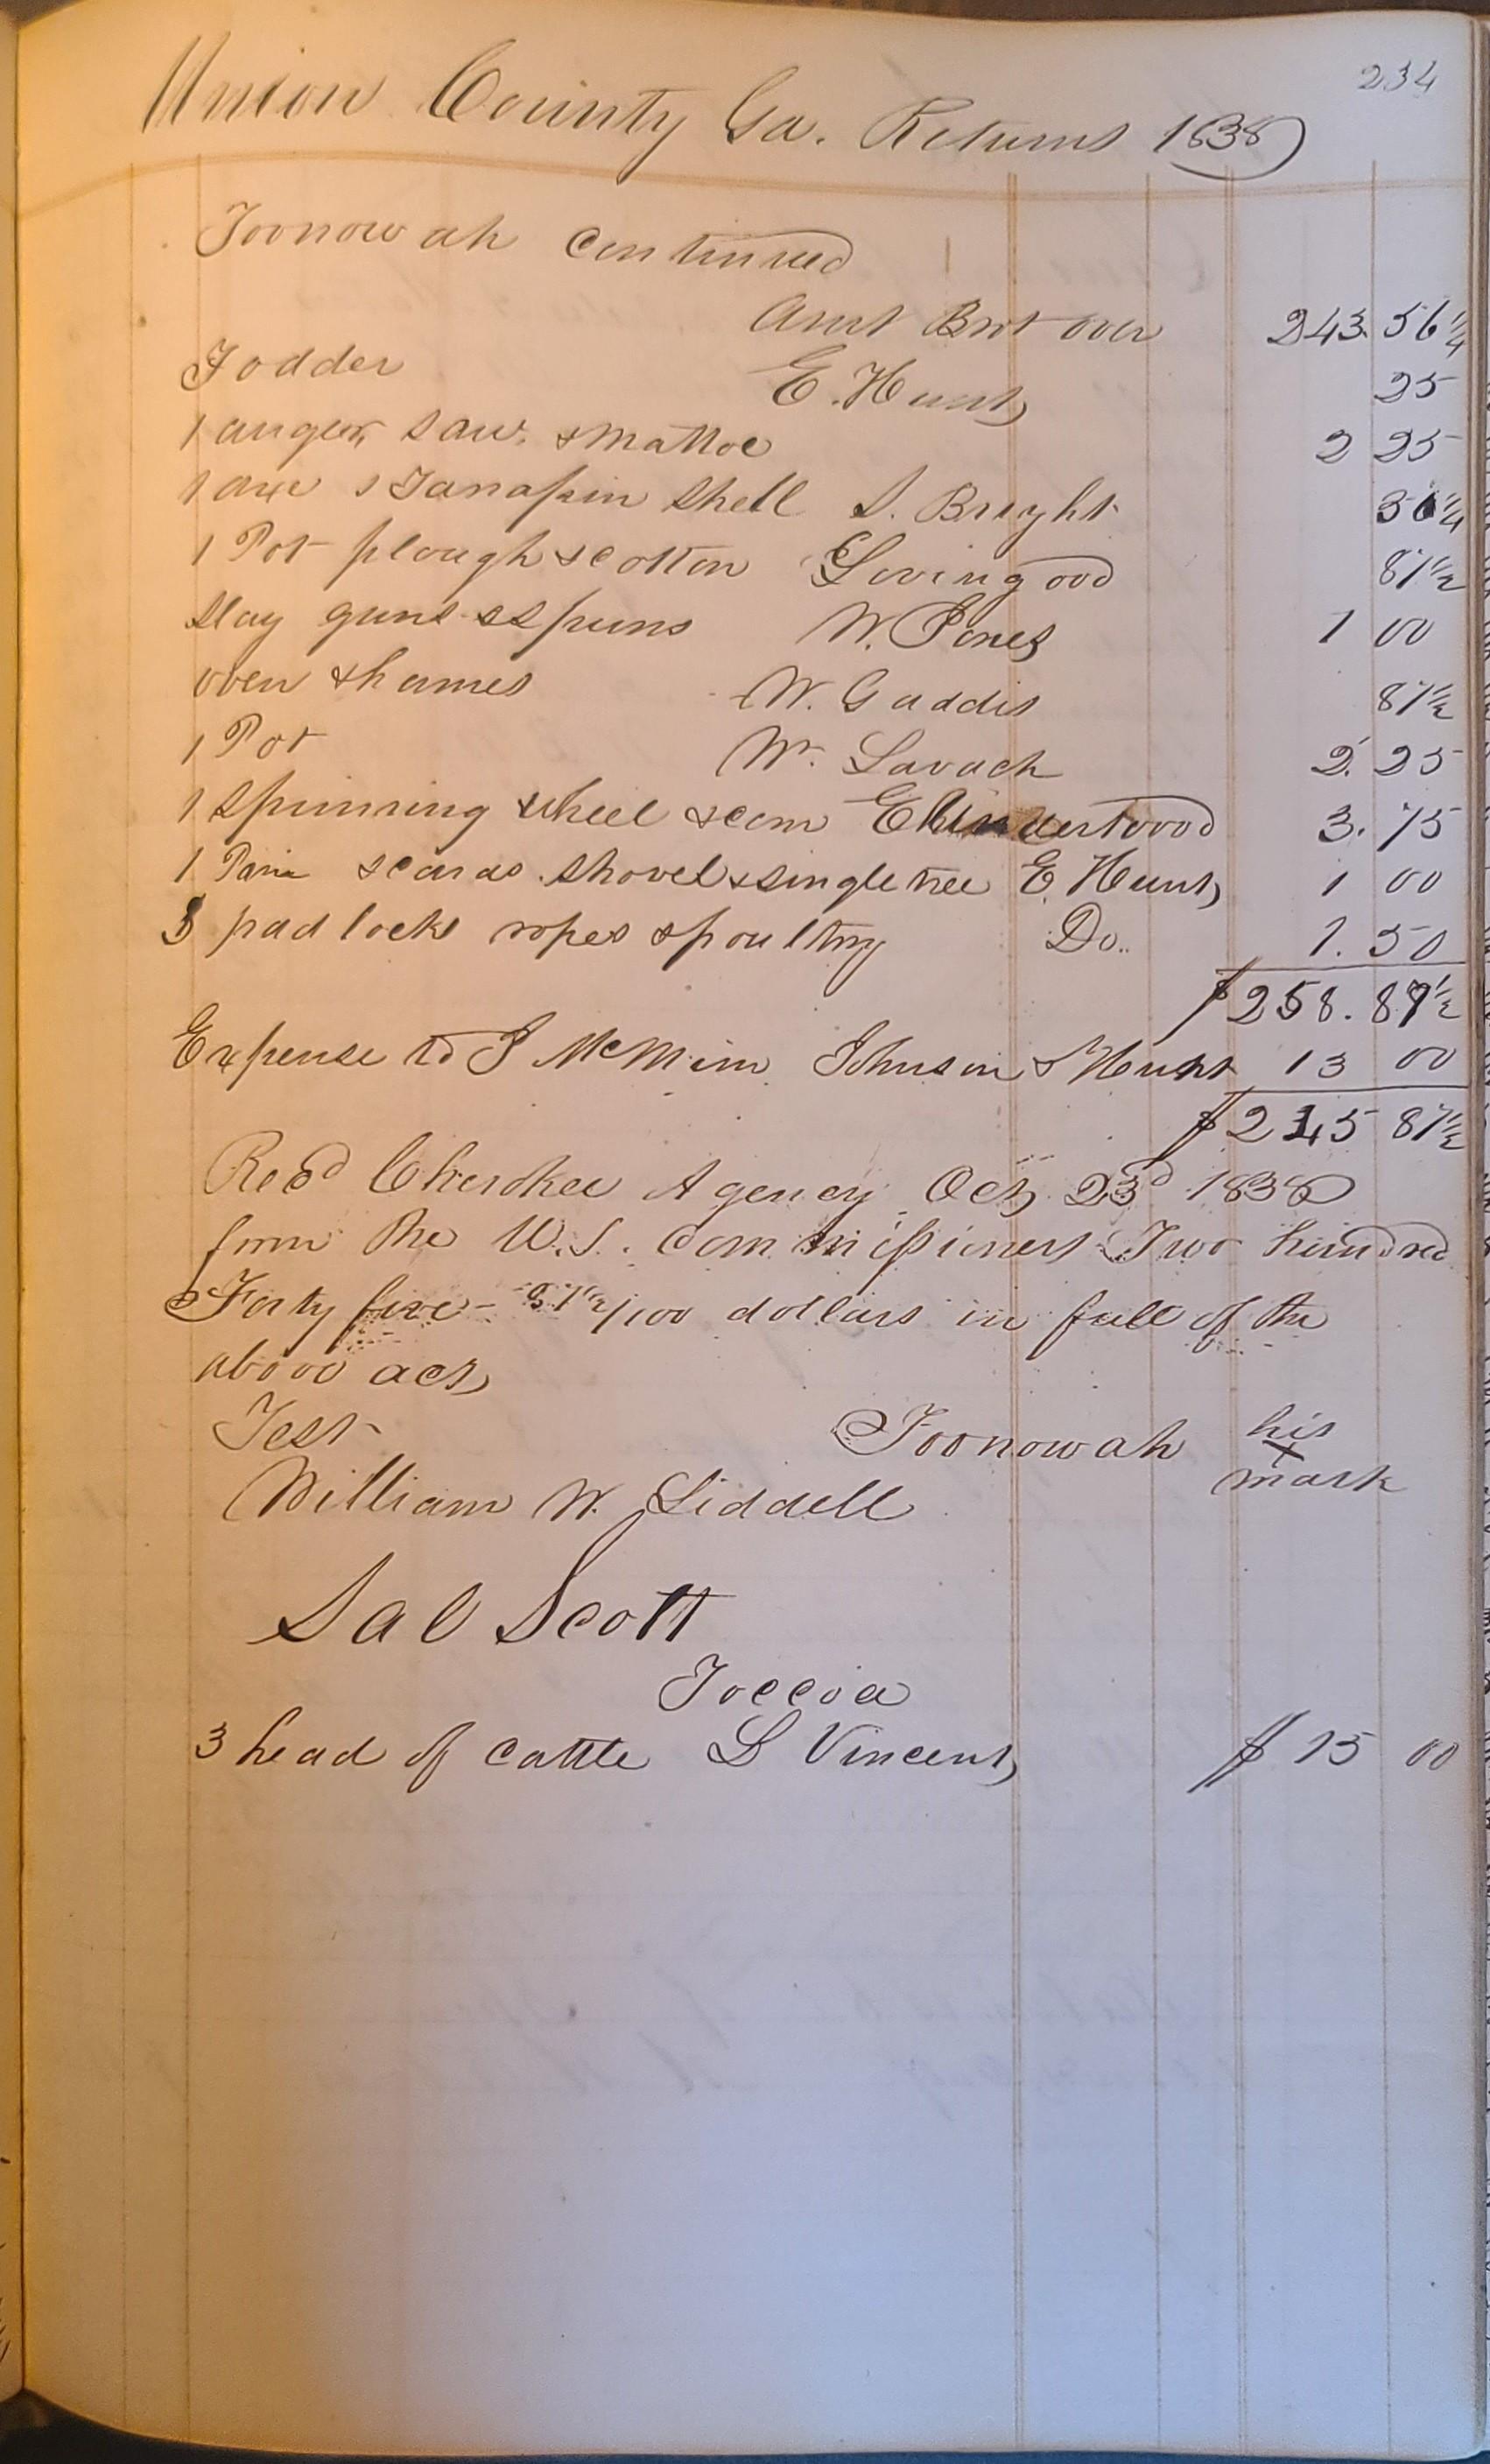 234
Union County Ga. Returns 1838
Toonowah Continued
Amt Brot over 243. 56 1/4
Fodder E. Hunt 25
1 auger, saw, & Mattoc 2 25
1 axe & Tarrapin Shell S. Bright 56 1/4
1 Pot plough & cotton Lovingood 87 1/2
Slay guns & spuns W. Jones 1 00
oven & hames W. Gaddis 87 1/2
1 Pot Wm. Lavach 2. 25
1 Spinning wheel & corn E Underwood 3. 75
1 Pain & cards. Shovel & singletree E. Hunt 1 00
3 pad locks ropes & poultry Do.. 1. 50
$258. 87 1/2
Expense to J McMinn Johnson & Hunt 13 00
$245 87 1/2
Recd Cherokee Agency Oct 23d 1838
from the U.S. Commissioners Two hundred
Forty five - 87 1/2/100 dollars in full of the
above act
Test
Toonowah his
x
mark
William W. Liddell
Sal Scott
Toccoa
3 head of cattle L Vincent $ 15 00